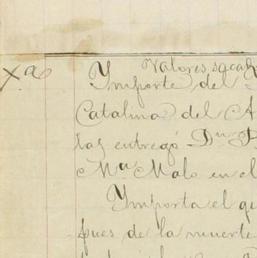 Valores sacab
Xª Importe del
Catalina del A
las entregó Dn P
Mª Malo en el
Importa el qu
pues de la muerte